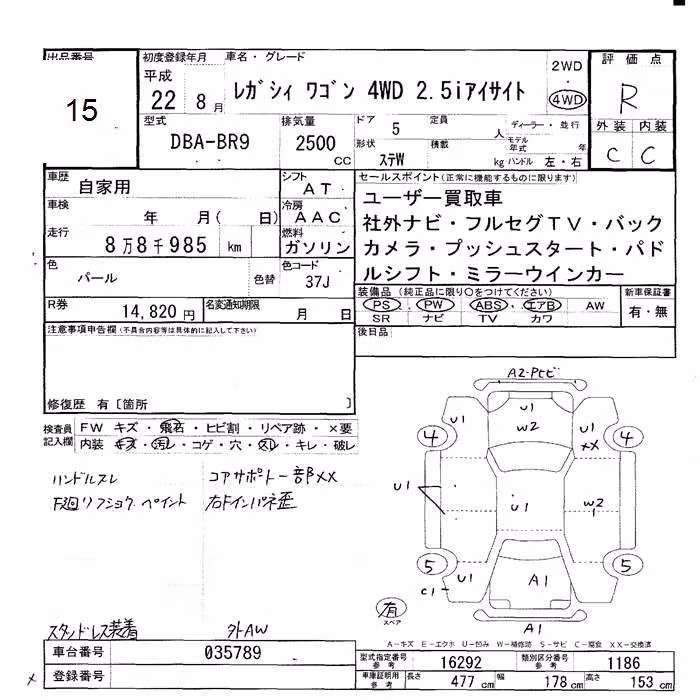 出品番号
15
初度登録年月
平成
22 8 月
車名・グレード
レガシィ ワゴン 4WD 2.5iアイサイト
2WD
・
4WD
評価点
R
外装 内装
C C
型式
DBA-BR9
排気量
2500
CC
ドア 5 定員 人
形状 ステW 積載 kg
ディーラー・並行
モデル年式 年
ハンドル 左・右
車歴
自家用
車検
年 月( 日)
走行
8万8千985 km
色
パール
色替
シフト
AT
冷房
AAC
燃料
ガソリン
色コード
37J
セールスポイント(正常に機能するものに限ります)
ユーザー買取車
社外ナビ・フルセグTV・バック
カメラ・プッシュスタート・パド
ルシフト・ミラーウインカー
装備品(純正品に限り○をつけてください)
PS PW ABS エアB AW
SR ナビ TV カワ
新車保証書
有・無
R券
14,820 円
名変通知期限
月 日
注意事項申告欄(不具合内容等は具体的に記入して下さい)
後日品
修復歴 有〔箇所 〕
検査員記入欄
FW キズ・飛石・ヒビ割・リペア跡・×要
内装 キズ・汚レ・コゲ・穴・スレ・キレ・破レ
ハンドルスレ
コアサポート一部××
下廻リフショク ペイント
右Fインパネ歪
スタッドレス装着
外AW
A2・Pヒビ
U1
U1
W2
U1
XX
4
4
U1
U1
W2
1
5
5
U1
C1
A1
有
スペア
A1
A-キズ E-エクボ U-凹み W-補修跡 S-サビ C-腐食 XX-交換済
車台番号
035789
登録番号
型式指定番号 参考
16292
類別区分番号 参考
1186
車庫証明用 参考
長さ 477 cm 幅 178 cm 高さ 153 cm